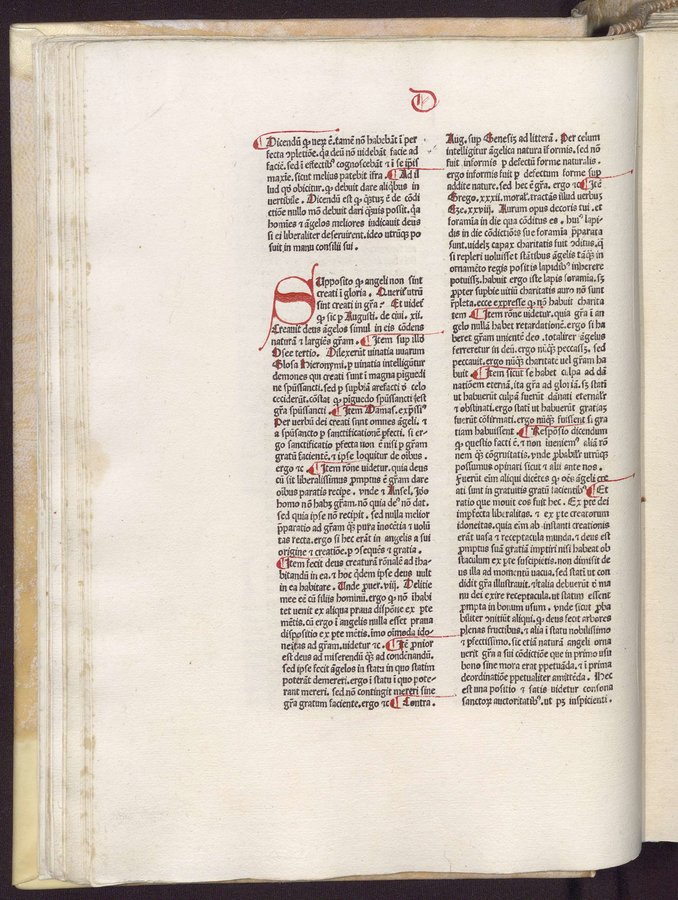 D
¶ Dicendū ꝙ veꝝ ē. tamē nō habebāt ī per
fecta ꝯpletiōe. qꝛ deū nō uidebāt facie ad
faciē. sed ī effectibꝰ cognoscebāt ⁊ ī se ip̄is
maxīe. sicut melius patebit īfra. ¶ Ad il
lud qꝫ obicitur. ꝙ debuit dare aliqͥbus in
uertibile. Dicendū est ꝙ qͣtuꝫ ē de cōdi
ctiōe nullo mō debuit dari qͣꝫuis possit. qꝛ
homīes ⁊ āgelos meliores indicauit deus
si ei liberaliter deseruirent. ideo utrūqꝫ po
suit in manu consilii sui .
Supposito ꝙ angeli non sint
creati ī gloria . Queriť utrū
sint creati in gr̄a . Et uideť
ꝙ sic ꝑ Augusti. de ciui. xii.
Creauit deus āgelos simul in eis cōdens
naturā ⁊ largiēs gr̄am . ¶ Item sup illō
Osee tertio. Dilexerūt uinatia uuarum
Glosa Hieronymi. ꝑ uinatia intelligūtur
demones qui creati sunt ī magna piguedi
ne sp̄ussancti. sed ꝑ supbiā arefacti ō celo
ceciderūt. cōstat ꝙ piguedo sp̄ussancti ſest
gr̄a sp̄ussancti . ¶ Item Damaſ. exp̄sse
Per uerbū dei creati sunt omnes āgeli. ⁊
a sp̄usancto ꝑ sanctificationē ꝑfecti. si er-
go sanctificatio ꝑfecta non ē nisi ꝑ gr̄am
gratū facientē. ⁊ ipse loquitur de oībus .
ergo ⁊c . ¶ Item rōne uidetur. quia deus
cū sit liberalissimus ꝓmptus ē gr̄am dare
oībus paratis recipe . vnde ⁊ Ansel. Iō
homo nō habꝫ gr̄am. nō quia deꝰ nō dat.
sed quia ipse nō recipit . sed nulla melior
ꝑparatio ad gr̄am qͣꝫ pura īnocētia ⁊ uolū
tas recta. ergo si hec erāt in angelis a sui
origine ⁊ creatiōe. ꝑ ꝯsequēs ⁊ gratia .
¶ Item fecit deus creaturā rōnalē ad īha-
bitandū in ea. ⁊ hoc qͥdem ipse deus uult
in ea habitare . Unde ꝓuer. viij. Delitie
mee eē cū filiis hominū. ergo ꝙ nō habi
tet uenit ex aliqua praua dispōne ex pte
mētis. cū ergo ī angelis nulla esset praua
dispositio ex pte mētis. imo oīmoda ido-
neitas ad gr̄am. uidetur ⁊c. ¶ Itē ꝓnior
est deus ad miserendū qͣꝫ ad condenandū.
sed ipse fecit āgelos in statu in quo statim
poterāt demereri. ergo ī statu ī quo pote-
rant mereri. sed nō contingit mereri sine
gr̄a gratum faciente. ergo ⁊c ¶ Contra .
Aug. sup Genesiꝫ ad litterā. Per celum
intelligitur āgelica natura īformis. sed nō
fuit informis ꝑ defectū forme naturalis .
ergo informis fuit ꝑ defectum forme sup
addite nature. sed hec ē gr̄a. ergo ⁊c ¶ Itē
Grego. xxxii. moral. tractās illud uerbuꝫ
Eze. xxviij. Aurum opus decoris tui. et
foramīa in die qua cōditus es . huiꝰ lapi-
dis in die cōdictiōis sue foramīa ꝓparata
sunt. uidelꝫ capax charitatis fuit ꝯditus. qͥ
si repleri uoluisset stātibus āgelis tāqͣꝫ in
ornamēto regis positis lapidibꝰ inherere
potuisset. habuit ergo iste lapis foramia. sꝫ
ꝓpter supbie uitiū charitatis auro nō sunt
rꝑleta. ecce expresse ꝙ nō habuit charita
tem ¶ Item rōne uidetur. quia gr̄a ī an
gelo nullā habet retardationē. ergo si ha
beret gr̄am unientē deo . totaliter āgelus
ferretur in deū. ergo nūqͣꝫ peccasset. sed
peccauit. ergo nūqͣꝫ charitatē uel gr̄am ha
buit . ¶ Item sicut se habet culpa ad dā
natiōem eternā. ita gr̄a ad gloriā. sꝫ stati
ut habuerūt culpā fuerūt dānati eternaliť
⁊ obstinati. ergo stati ut habuerūt gratiaꝫ
fuerūt cōfirmati. ergo nūqͣꝫ fuissent si gra
tiam habuissent. ¶ Respōsio dicendum
ꝙ questio facti ē. ⁊ non inuenimꝰ aliā rō
nem qͣꝫ cōgruitatis. vnde ꝓbabiliť utrūqꝫ
possumus opinari sicut ⁊ alii ante nos .
Fuerūt eīm aliqui dicētes ꝙ oēs āgeli cre
ati sunt in gratuitis gratū facientibꝰ ¶ Et
ratio que mouit eos fuit hec. Ex pte dei
impfecta libcralitas. ⁊ ex pte creatorum
idoneitas. quia eīm ab instanti creationis
erāt uasa ⁊ receptacula munda. ⁊ deus est
ꝓmptus suā gratiā imptiri nisi habeat ob
staculum ex pte suscipietis. non dimisit de
us illa ad momentū uacua. sed stati ut con
didit gr̄a illustrauit. ⁊ talia debuerūt ō ma
nu dei exire receptacula. ut statum essent
ꝓmpta in bonum usum . vnde sicut ꝓba
biliter ꝯnitiūt aliqui. ꝙ deus seot arbores
plenas fructibus. ⁊ alia ī statu nobilissimo
⁊ ꝑfectissimo. sic etiā naturā angeli orna
uerit gr̄a a sui cōdictiōe que in primo usu
bono sine mora erat ꝑpetuāda. ⁊ ī prima
deordinatiōe ꝑpetualiter amittēda. Hec
est una positio ⁊ satis uidetur consona
sanctoꝝ auctoritatibꝰ. ut pꝫ inspicienti .